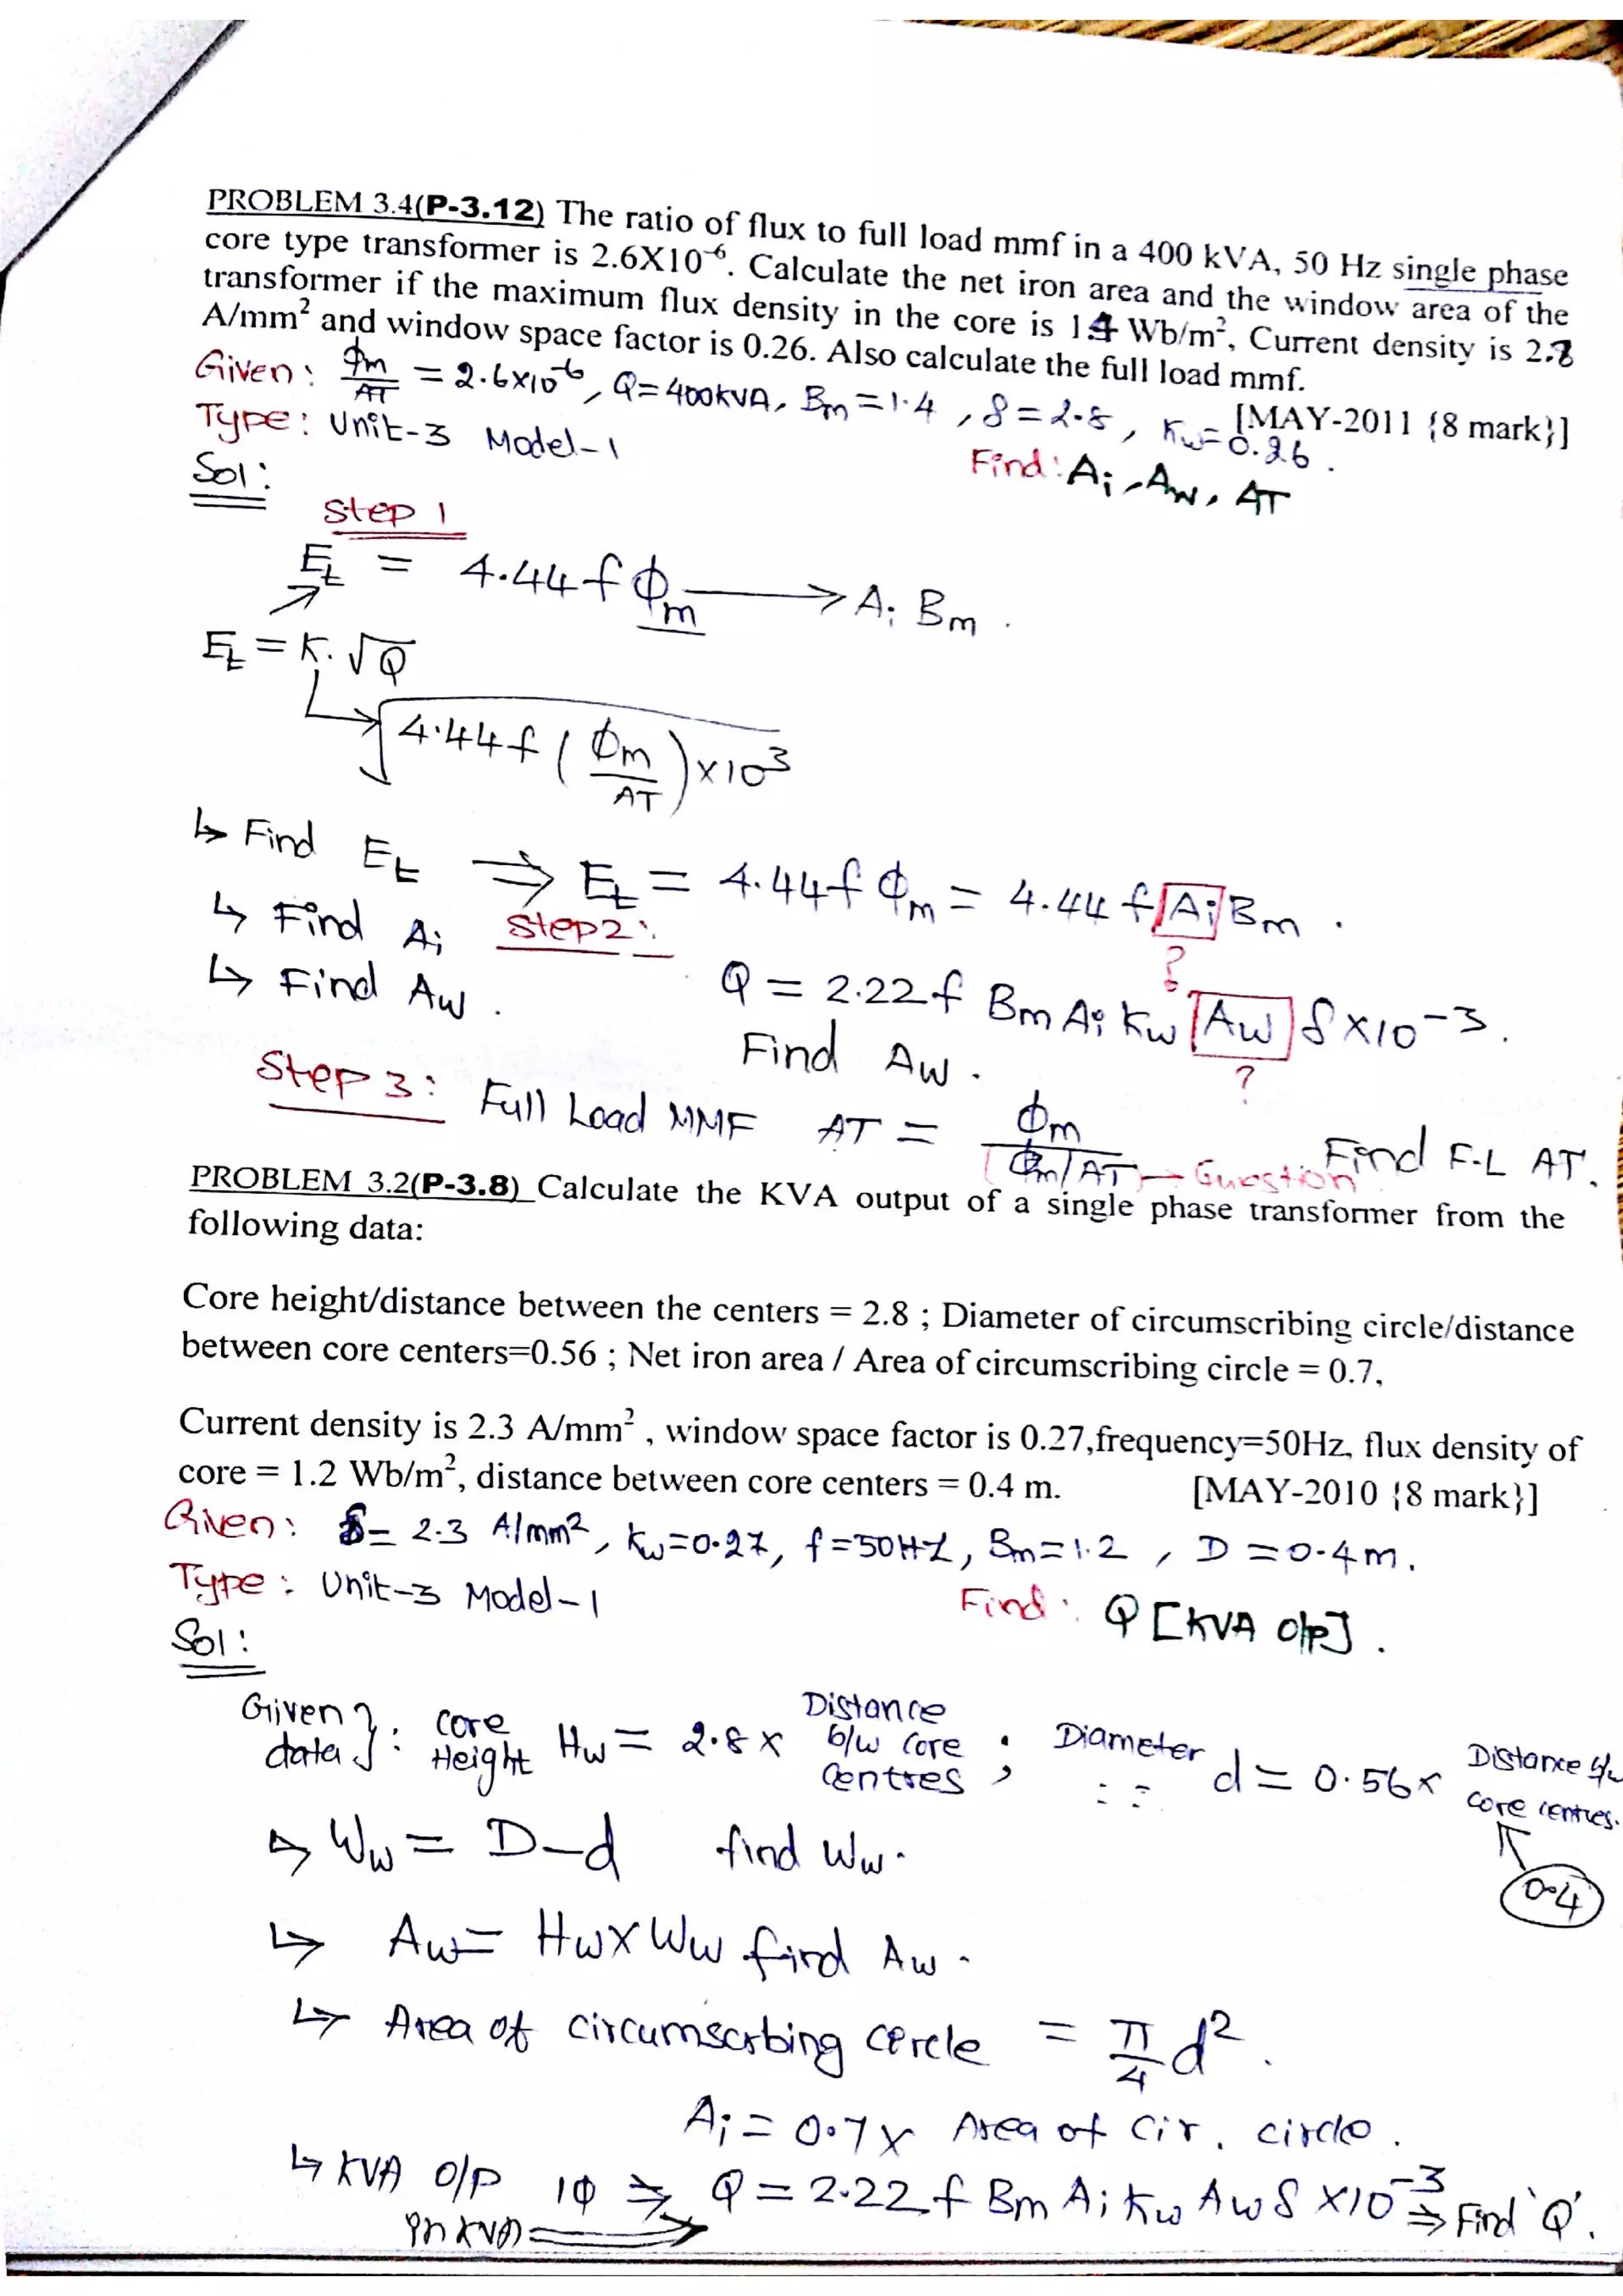 PROBLEM 3.4(P-3.12) The ratio of flux to full load mmf in a 400 kVA, 50 Hz single phase
core type transformer is 2.6X10⁻⁶. Calculate the net iron area and the window area of the
transformer if the maximum flux density in the core is 1.4 Wb/m², Current density is 2.8
A/mm² and window space factor is 0.26. Also calculate the full load mmf.
[MAY-2011 {8 mark}]
Given: Φm/AT = 2.6x10⁻⁶, Q=400kVA, Bm=1.4, δ=2.8, Kw=0.26.
Type: Unit-3 Model-1
Find: Ai, Aw, AT
Sol:
Step 1
Et = 4.44fΦm → Ai Bm.
Et = K.√Q
√4.44f(Φm/AT)x10³
↳ Find Et ⇒ Et = 4.44fΦm = 4.44f Ai Bm.
?
↳ Find Ai
Step2:
↳ Find Aw.
Q = 2.22f Bm Ai Kw Aw δ x10⁻³.
?
Find Aw.
Step 3: Full Load MMF AT = Φm/(Φm/AT) → Question Find F.L AT.
PROBLEM 3.2(P-3.8) Calculate the KVA output of a single phase transformer from the
following data:
Core height/distance between the centers = 2.8 ; Diameter of circumscribing circle/distance
between core centers=0.56 ; Net iron area / Area of circumscribing circle = 0.7,
Current density is 2.3 A/mm² , window space factor is 0.27,frequency=50Hz, flux density of
core = 1.2 Wb/m², distance between core centers = 0.4 m. [MAY-2010 {8 mark}]
Given: δ= 2.3 A/mm², Kw=0.27, f=50HZ, Bm=1.2, D=0.4m.
Type: Unit-3 Model-1
Find: Q [KVA O/P].
Sol:
Given data}: Core Height Hw = 2.8 x Distance b/w Core Centres ; Diameter d = 0.56x Distance b/w Core Centres.
0.4
↳ Ww = D-d find Ww.
↳ Aw= HwxWw find Aw.
↳ Area of circumscrbing circle = π/4 d².
Ai = 0.7x Area of Cir. circle.
↳ KVA O/P 1Φ ⇒ Q = 2.22f Bm Ai Kw Aw δ x10⁻³ ⇒ Find 'Q'.
in KVA)